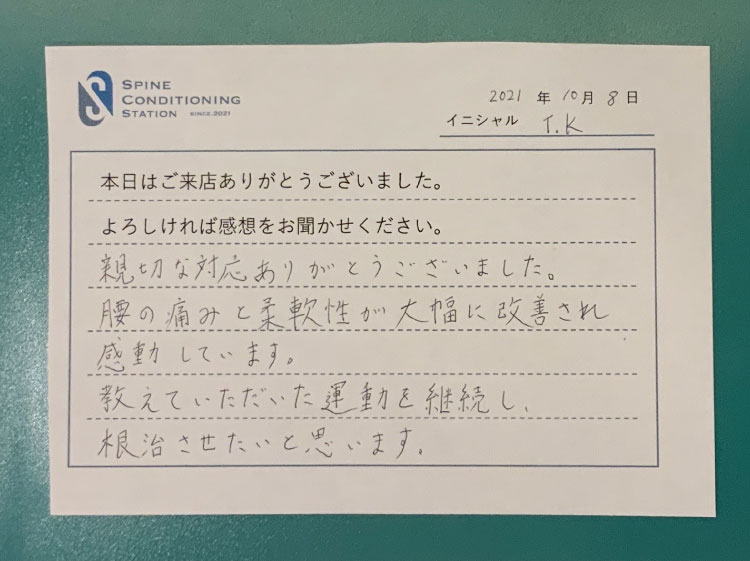 SPINE
CONDITIONING
STATION SINCE.2021
2021 年 10月 8日
イニシャル T.K
本日はご来店ありがとうございました。
よろしければ感想をお聞かせください。
親切な対応ありがとうございました。
腰の痛みと柔軟性が大幅に改善され
感動しています。
教えていただいた運動を継続し、
根治させたいと思います。